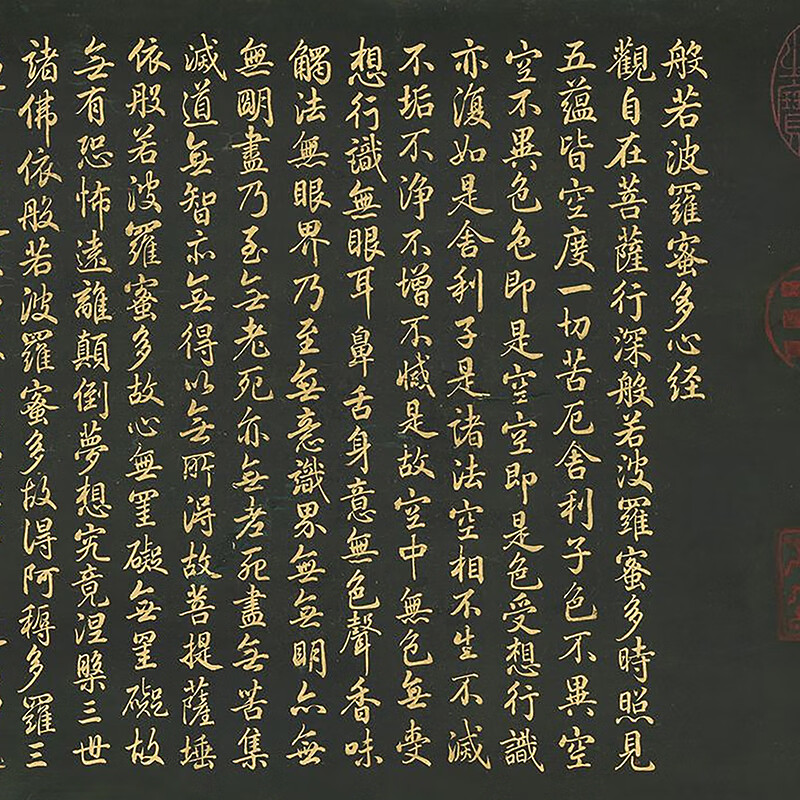 般若波羅蜜多心経
觀自在菩薩行深般若波羅蜜多時照見
五蘊皆空度一切苦厄舍利子色不異空
空不異色色即是空空即是色受想行識
亦復如是舍利子是諸法空相不生不滅
不垢不淨不增不減是故空中無色無受
想行識無眼耳鼻舌身意無色聲香味
觸法無眼界乃至無意識界無無明亦無
無明盡乃至無老死亦無老死盡無苦集
滅道無智亦無得以無所得故菩提薩埵
依般若波羅蜜多故心無罣礙無罣礙故
無有恐怖遠離顛倒夢想究竟涅槃三世
諸佛依般若波羅蜜多故得阿耨多羅三